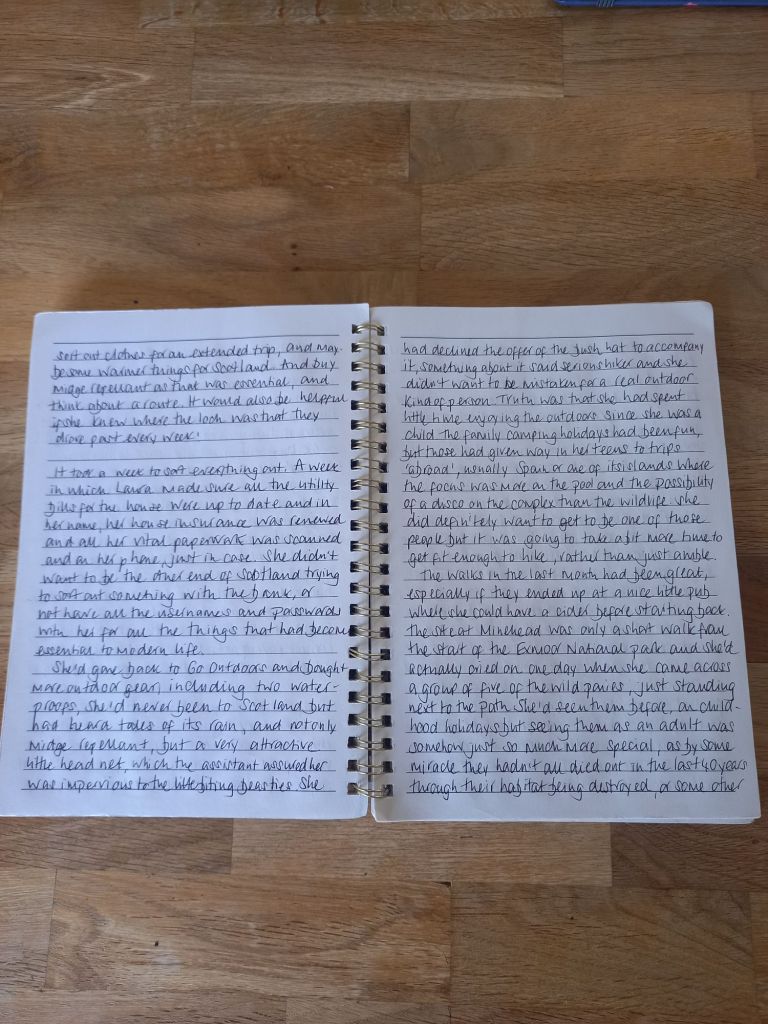 sort out clothes for an extended trip, and may-
be some warmer things for Scotland. And buy
midge repellant as that was essential, and
think about a route. It would also be helpful
if she knew where the loch was that they
drove past every week!
It took a week to sort everything out. A week
in which Laura made sure all the utility
bills for the house were up to date and in
her name, her house insurance was renewed
and all her vital paperwork was scanned
and on her phone, just in case. She didn't
want to be the other end of Scotland trying
to sort out something with the bank, or
not have all the usernames and passwords
with her for all the things that had become
essential to modern life.
She'd gone back to Go Outdoors and bought
more outdoor gear, including two water-
proofs, she'd never been to Scotland but
had heard tales of its rain, and not only
midge repellant, but a very attractive
little head net, which the assistant assured her
was impervious to the little biting beasties. She
had declined the offer of the hat to accompany
it, something about it said serious hiker and she
didn't want to be mistaken for a real outdoor
kind of person. Truth was that she had spent
little time enjoying the outdoors since she was a
child the family camping holidays had been fun,
but those had given way in her teens to trips
'abroad', usually Spain or one of its islands where
the focus was more on the pool and the possibility
of a disco on the complex than the wildlife. She
did definitely want to get to be one of those
people but it was going to take a bit more time to
get fit enough to hike, rather than just amble.
The walks in the last month had been great,
especially if they ended up at a nice little pub
where she could have a cider before starting back.
The site at Minehead was only a short walk from
the start of the Exmoor National park and she'd
actually cried on one day when she came across
a group of five of the wild ponies, just standing
next to the path. She'd seen them before, on child-
hood holidays but seeing them as an adult was
somehow just so much more special, as by some
miracle they hadn't all died out in the last 40 years
through their habitat being destroyed, or some other